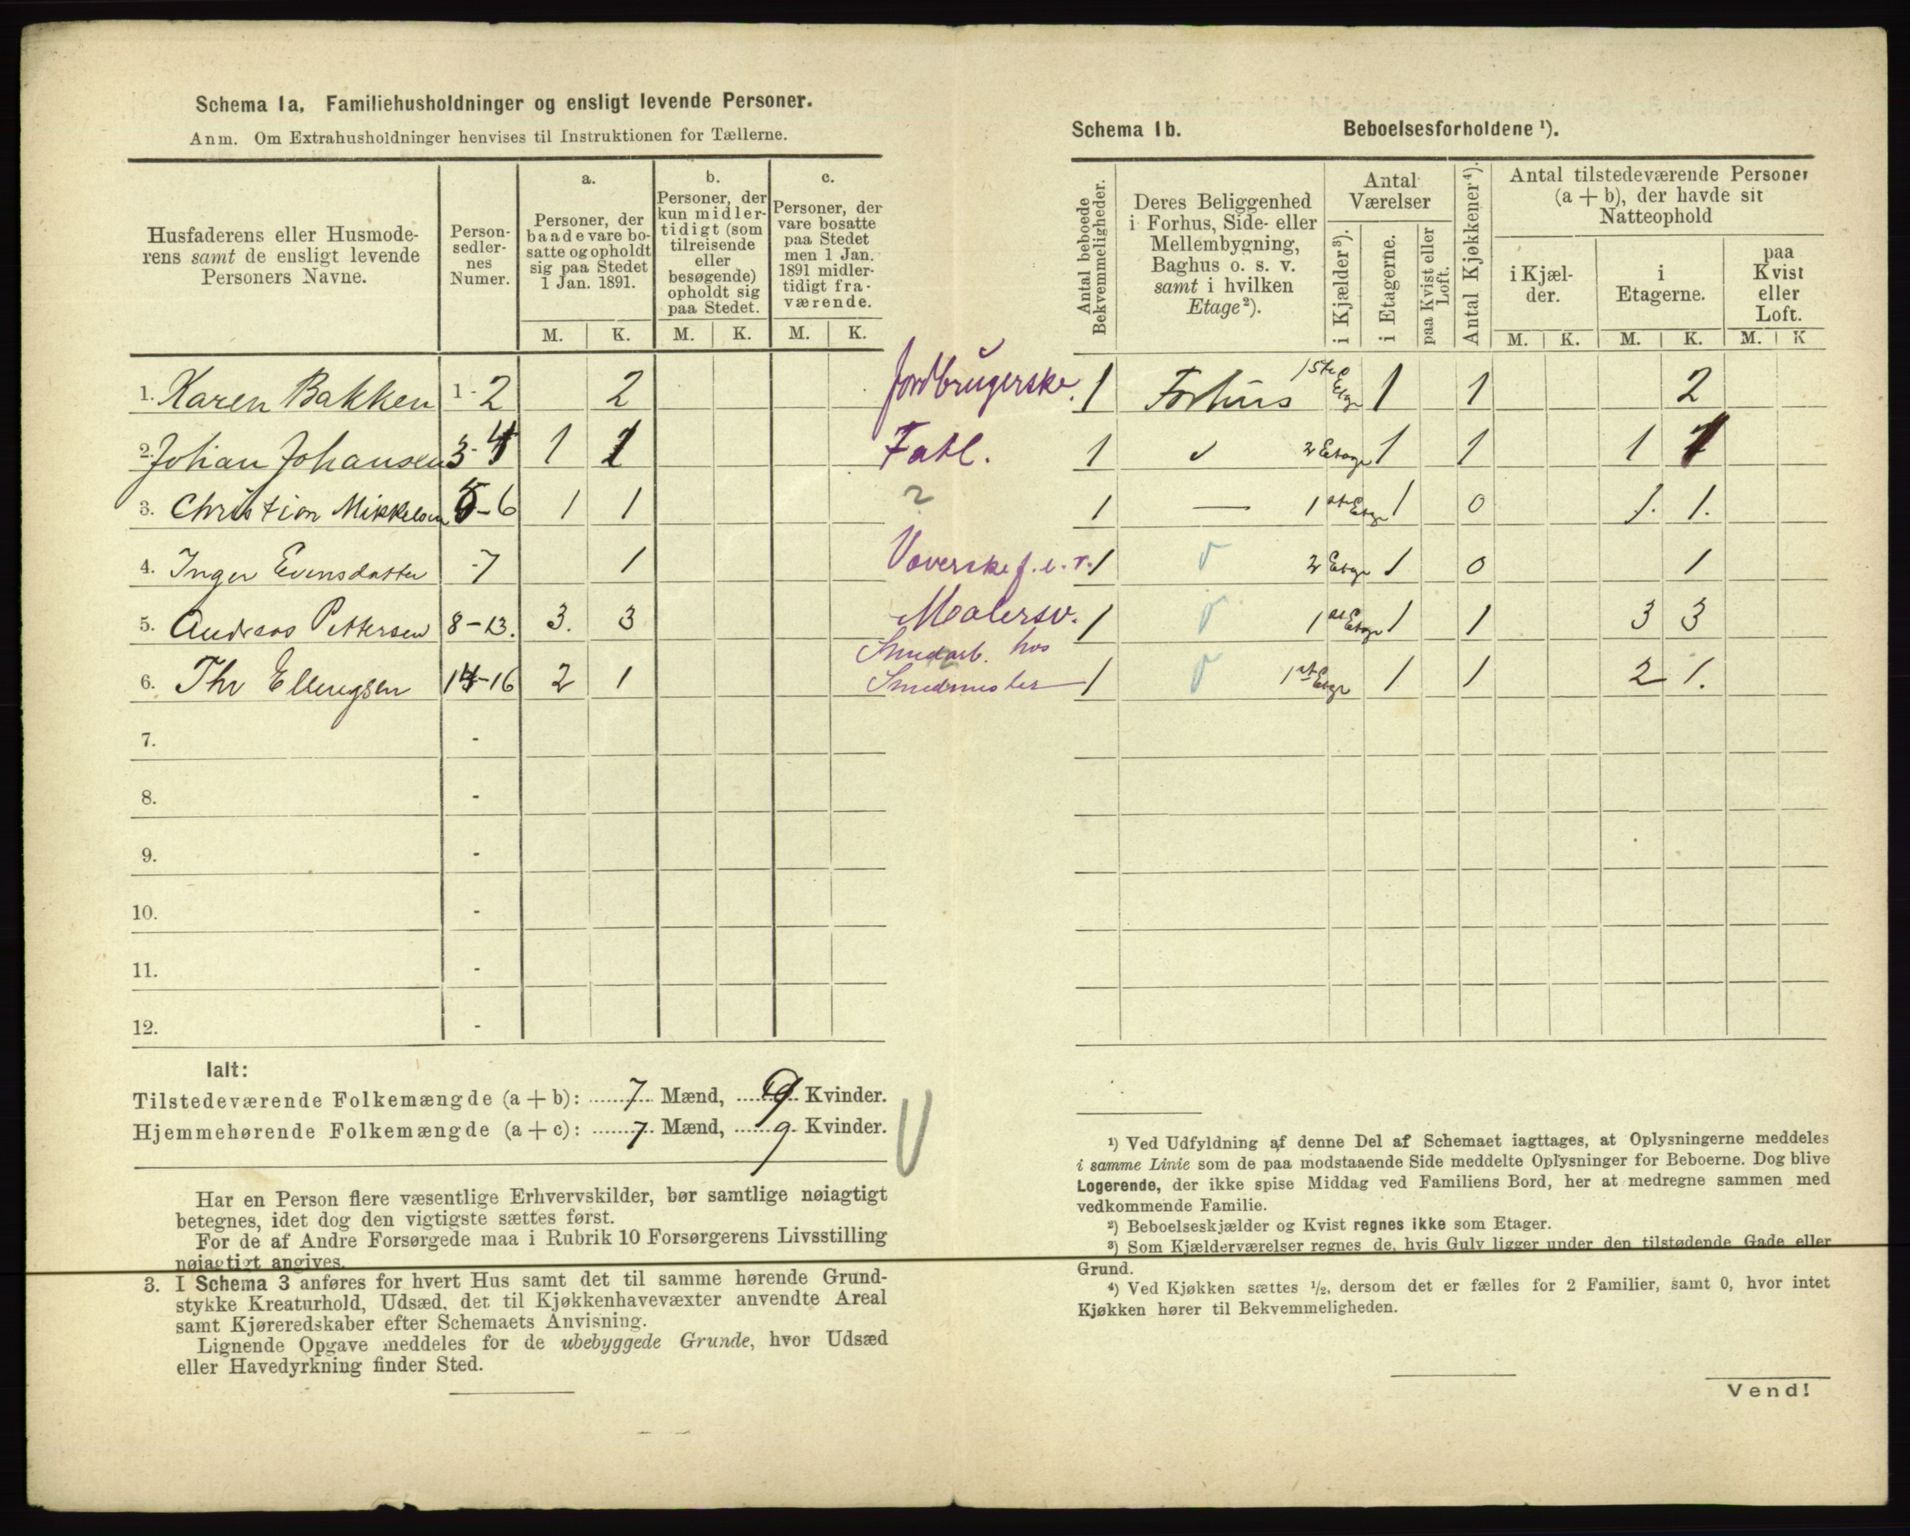 Schema 1a. Familiehusholdninger og ensligt levende Personer.
Anm. Om Extrahusholdninger henvises til Instruktionen for Tællerne.
Husfaderens eller Husmoderens samt de ensligt levende Personers Navne.
Person-sedlernes Numer.
a. Personer, der baade vare bosatte og opholdt sig paa Stedet 1 Jan. 1891.
b. Personer, der kun midlertidigt (som tilreisende eller besøgende) opholdt sig paa Stedet.
c. Personer, der vare bosatte paa Stedet men 1 Jan. 1891 midlertidigt fraværende.
M. K. M. K. M. K.
1. Karen Bakken 1-2 2 Jordbrugerske.
2. Johan Johansen 3-4 1 1 Fatl.
3. Christian Mikkelsen 5-6 1 1 ?
4. Inger Evensdatter -7 1 Væverske f. e. r.
5. Andreas Pettersen 8-13. 3. 3 Malersv.
6. Thv Ellingsen 14-16 2 1 Smedarb. hos Smedmester
7. -
8. -
9. -
10. -
11. -
12. -
Ialt:
Tilstedeværende Folkemængde (a + b): 7 Mænd, 9 Kvinder.
Hjemmehørende Folkemængde (a + c): 7 Mænd, 9 Kvinder.
Har en Person flere væsentlige Erhvervskilder, bør samtlige nøiagtigt
betegnes, idet dog den vigtigste sættes først.
For de af Andre Forsørgede maa i Rubrik 10 Forsørgerens Livsstilling
nøiagtigt angives.
3. I Schema 3 anføres for hvert Hus samt det til samme hørende Grund-
stykke Kreaturhold, Udsæd, det til Kjøkkenhavevæxter anvendte Areal
samt Kjøreredskaber efter Schemaets Anvisning.
Lignende Opgave meddeles for de ubebyggede Grunde, hvor Udsæd
eller Havedyrkning finder Sted.
Schema 1b. Beboelsesforholdene ¹).
Antal beboede Bekvemmeligheder.
Deres Beliggenhed i Forhus, Side- eller Mellembygning, Baghus o. s. v. samt i hvilken Etage²).
Antal Værelser
i Kjælder³).
i Etagerne.
paa Kvist eller Loft.
Antal Kjøkkener⁴).
Antal tilstedeværende Personer (a + b), der havde sit Natteophold
i Kjælder.
i Etagerne.
paa Kvist eller Loft.
M. K. M. K. M. K
1 Forhus 1ste Etage 1 1 2
1 2 Etage 1 1 1 1
1 — 1ste Etage 1 0 1. 1.
1 2 Etage 1 0 1
1 1ste Etage 1 1 3 3
1 1ste Etage 1 1 2 1.
¹) Ved Udfyldning af denne Del af Schemaet iagttages, at Oplysningerne meddeles
i samme Linie som de paa modstaaende Side meddelte Oplysninger for Beboerne. Dog blive
Logerende, der ikke spise Middag ved Familiens Bord, her at medregne sammen med
vedkommende Familie.
²) Beboelseskjælder og Kvist regnes ikke som Etager.
³) Som Kjælderværelser regnes de, hvis Gulv ligger under den tilstødende Gade eller
Grund.
⁴) Ved Kjøkken sættes ½, dersom det er fælles for 2 Familier, samt 0, hvor intet
Kjøkken hører til Bekvemmeligheden.
Vend!